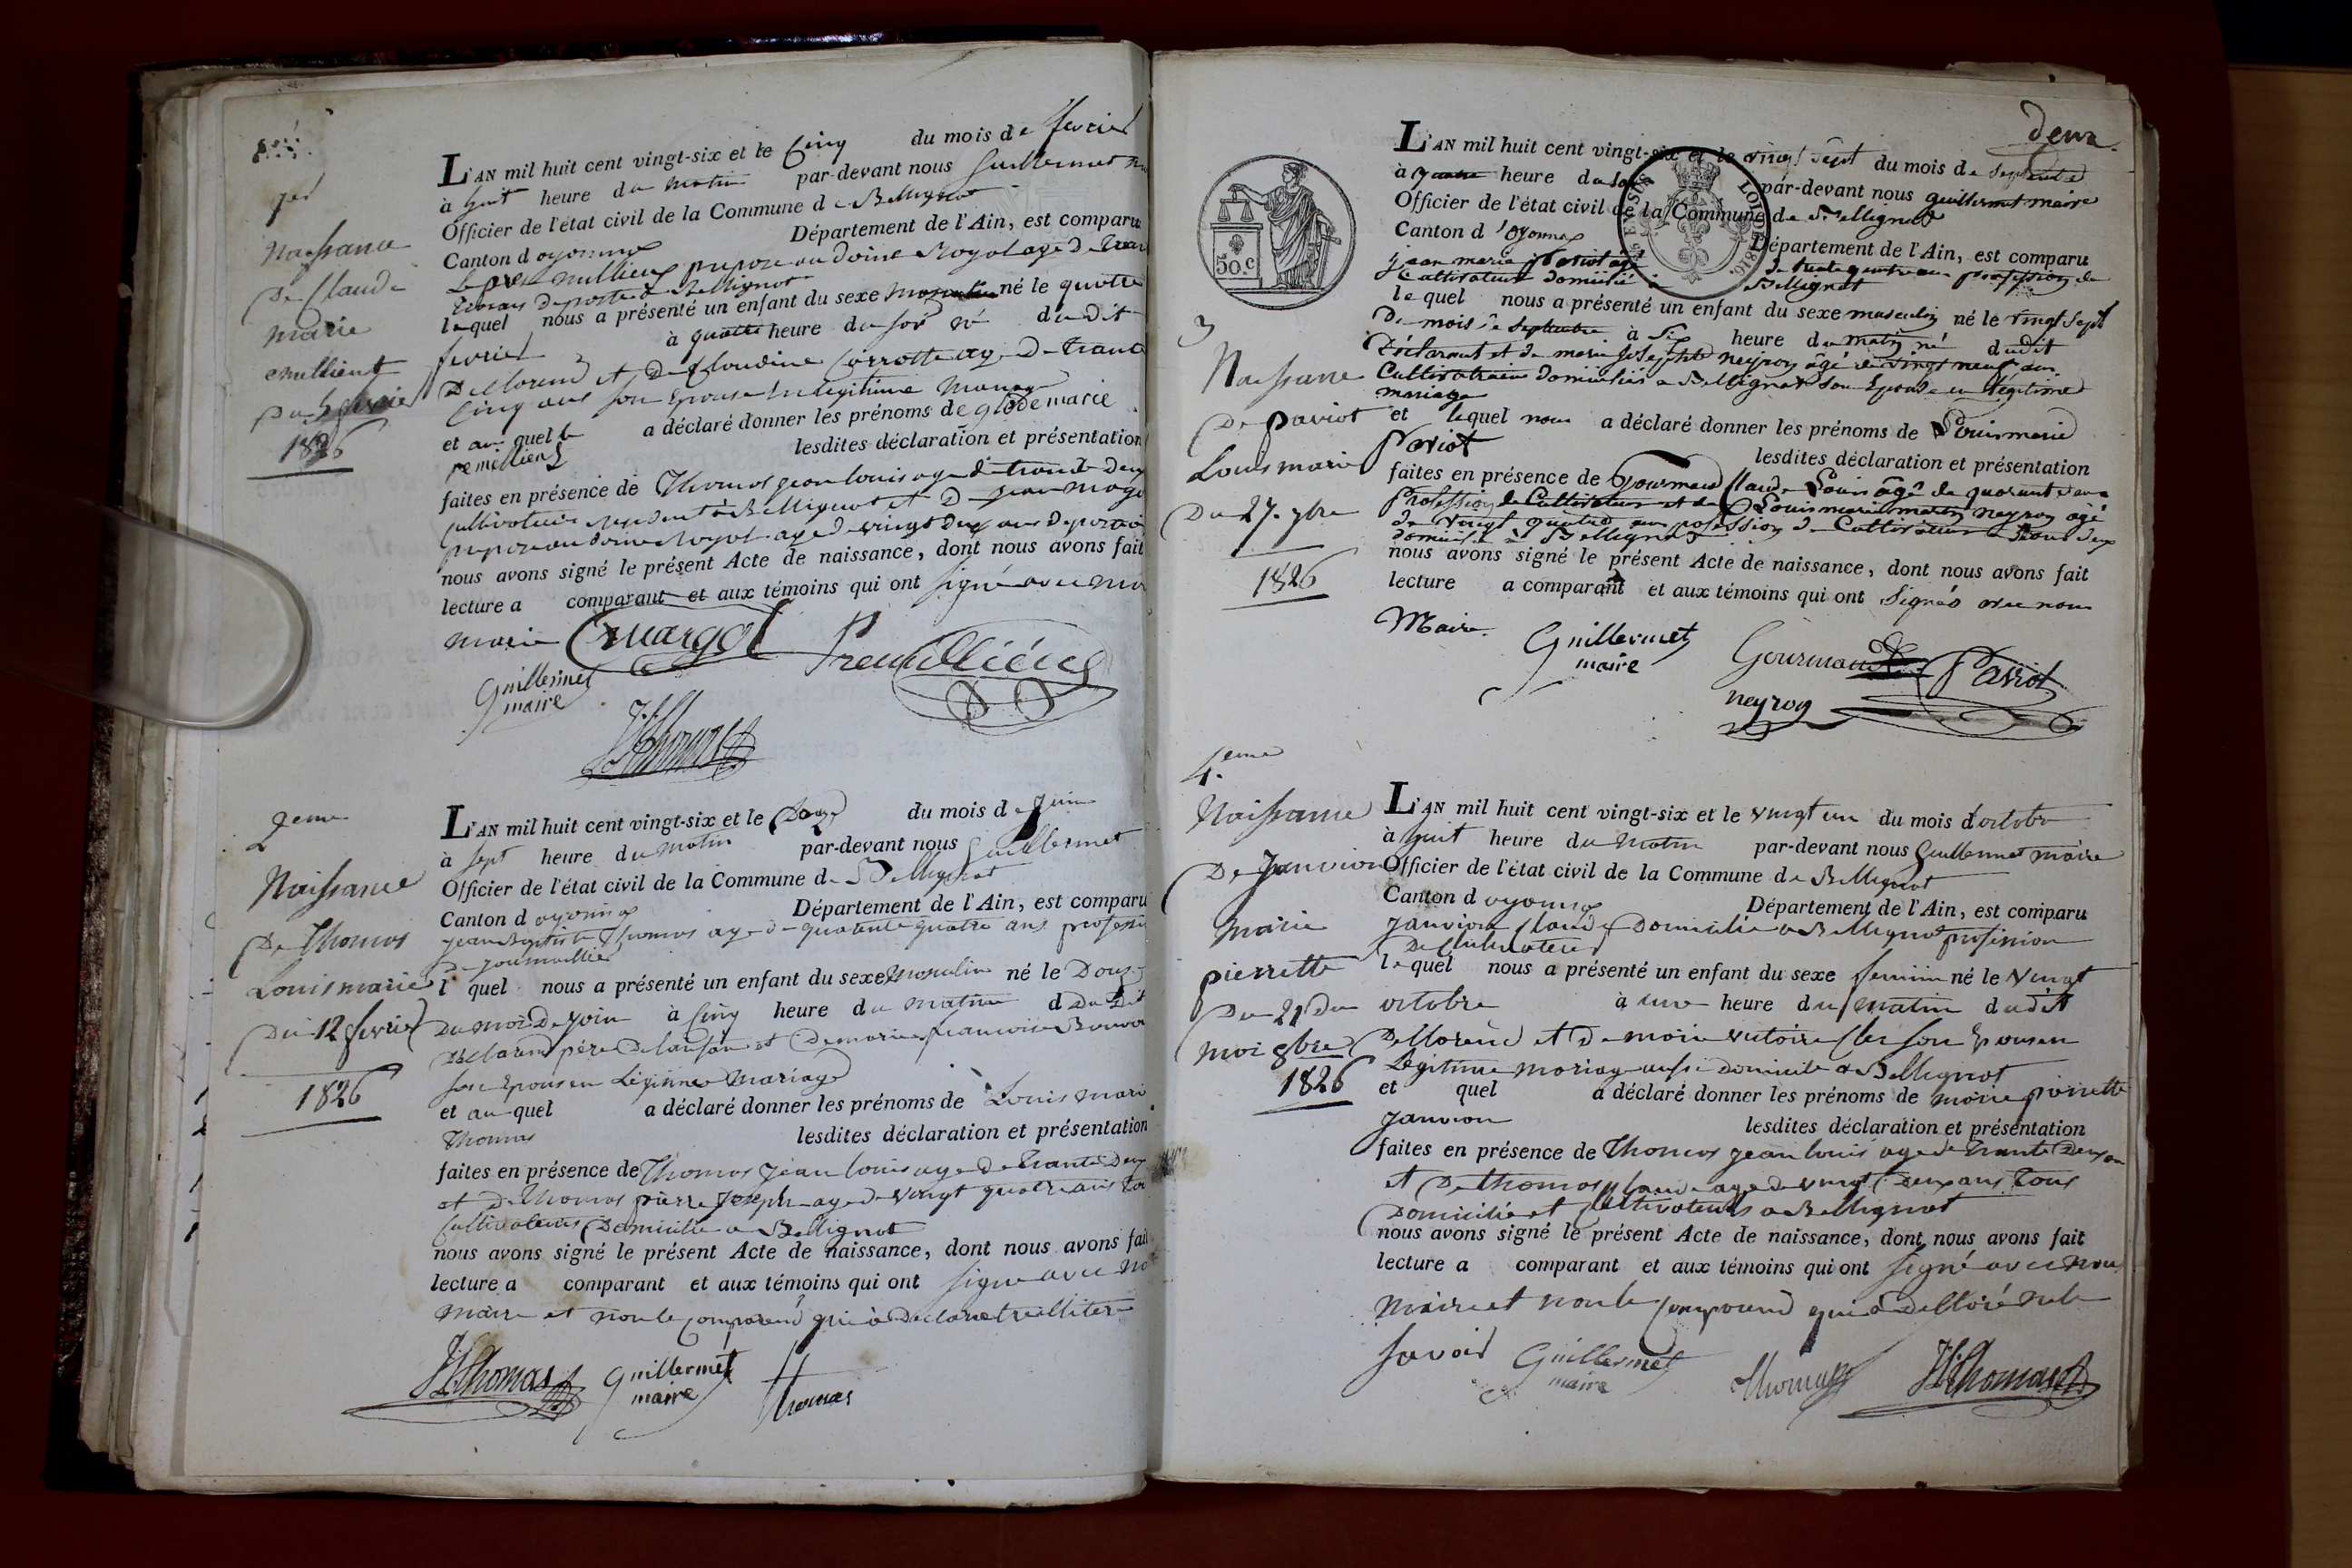 1er
Naissance
De Claude
marie
emillient
Du 5 fevrier
1826
L'AN mil huit cent vingt-six et le Cinq du mois de fevrier
à huit heure du matin par-devant nous Guillermet
Officier de l'état civil de la Commune de Bellignat
Canton d oyonnax Département de l'Ain, est comparu
prepose au doine Royal age de
lequel nous a présenté un enfant du sexe masculin né le quatre
fevrier à quatre heure du soir né dudit
Declarend et De Claudine Carrotte age De trante
Cinq ans son Epouse En legitime Mariage
et au quel a déclaré donner les prénoms de glode marie
lesdites déclaration et présentation
faites en présence de Thomas jean louis age de trante Deux
cultivateur resident à Bellignat et De jean
prepose au doine Royal age de vingt deux ans
nous avons signé le présent Acte de naissance, dont nous avons fait
lecture a comparant et aux témoins qui ont signé avec
maire
Guillermet
maire
JLThomas
2eme
Naissance
De Thomas
Louis marie
Du 12 fevrier
1826
L'AN mil huit cent vingt-six et le Douze du mois de Juin
à sept heure du matin par-devant nous Guillermet
Officier de l'état civil de la Commune de Bellignat
Canton d oyonnax Département de l'Ain, est comparu
jean Baptiste Thomas age de quarante quatre ans
De journallier
l quel nous a présenté un enfant du sexe Masculin né le Douze
Du mois De join à Cinq heure du matin dudit
Declarend père De lanfan et De marie francoise
son Epouse en Légitime Mariage
et au quel a déclaré donner les prénoms de Louis mari
Thomas lesdites déclaration et présentation
faites en présence de Thomas Jean louis age de trante Deux
et De Thomas pierre Joseph age de vingt quatre ans
Cultivateurs Domicilie a Bellignat
nous avons signé le présent Acte de naissance, dont nous avons fait
lecture a comparant et aux témoins qui ont signe avec
maire et non le comparend qui à Declaré
JLThomas Guillermet
maire Thomas
deux
50.c
1816
L'AN mil huit cent vingt-six et le vingt sept du mois de septembre
à quatre heure du soir par-devant nous guillermet maire
Officier de l'état civil de la Commune de Bellignat
Canton d'oyonnax Département de l'Ain, est comparu
jean marie paviot âgé de trente quatre ans profession de
Cultivateur domicilié à Bellignat
lequel nous a présenté un enfant du sexe masculin né le vingt sept
Du mois de septembre à six heure du matin né dudit
Déclarant et de marie josephte neyron âgé de vingt neuf ans
Cultivatrice domiciliés à Bellignat son Epouse en légitime
mariage
et lequel nous a déclaré donner les prénoms de Louis marie
Paviot lesdites déclaration et présentation
faites en présence de Gourmand Claude Louis âgé de quarante ans
Profession de Cultivateur et de Louis marie martin neyron âgé
de vingt quatre ans possession de Cultivateur tous deux
domicilié à Bellignat
nous avons signé le présent Acte de naissance, dont nous avons fait
lecture a comparant et aux témoins qui ont signés avec nous
Maire.
Guillermet
maire
Gourmand
Paviot
neyron
3
Naissance
De paviot
Louis marie
Du 27. 7bre
1826
4.eme
Naissance
De Janvion
marie
pierrette
Du 21 Du
moi 8bre
1826
L'AN mil huit cent vingt-six et le vingt un du mois d'octobre
à huit heure du matin par-devant nous Guillermet maire
Officier de l'état civil de la Commune de Bellignat
Canton d oyonnax Département de l'Ain, est comparu
Janvion Claude Domicilie a Bellignat profession
De Cultivateur
lequel nous a présenté un enfant du sexe feminin né le vingt
octobre à une heure du matin dudit
Declarend et De marie victoire Cler son Epouse en
Légitime mariage aussi Domicilie a Bellignat
et quel a déclaré donner les prénoms de marie pierrette
Janvion lesdites déclaration et présentation
faites en présence de Thomas jean louis age de trante Deux an
et De thomas Claude age de vingt deux ans tous
Domicilié et Cultivateurs a Bellignat
nous avons signé le présent Acte de naissance, dont nous avons fait
lecture a comparant et aux témoins qui ont signé avec nou
maire et non le comparend qui à Declaré ne le
savoir
Guillermet
maire
Thomas JLThomas